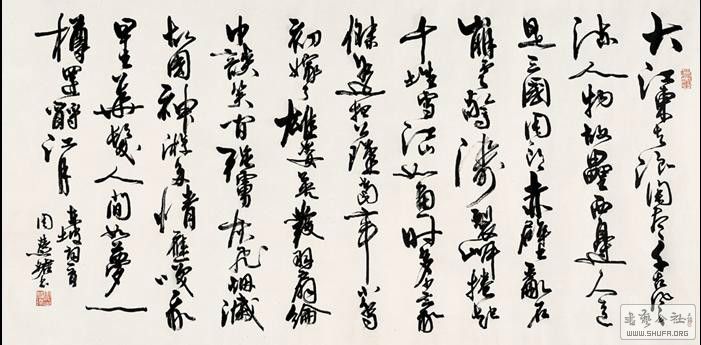 大江東去浪淘盡千古風
流人物故壘西邊人道
是三國周郎赤壁亂石
崩雲驚濤裂岸捲起
千堆雪江山如畫一時多少豪
傑遥想公瑾當年小喬
初嫁了雄姿英發羽扇綸
巾談笑間強虜灰飛烟滅
故國神游多情應笑我
早生華髮人間如夢一
樽還酹江月
東坡詞一首
周慧珺書
書藝公社
WWW.SHUFA.ORG